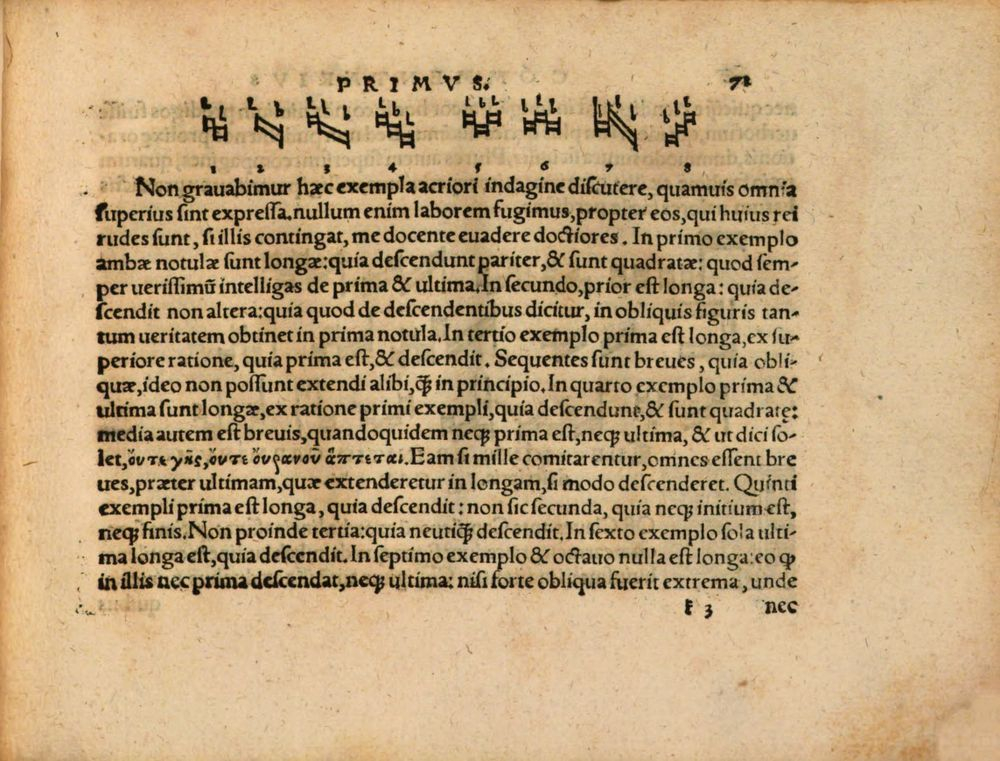 PRIMVS. 71
L L L L L L L L L L L L L L L L L L L L
1 2 3 4 5 6 7 8
Non grauabimur hæc exempla acriori indagine discutere, quamuis omnia
superius sint expressa. nullum enim laborem fugimus, propter eos, qui huius rei
rudes sunt, si illis contingat, me docente euadere doctiores. In primo exemplo
ambæ notulæ sunt longæ: quia descendunt pariter, & sunt quadratæ: quod sem-
per uerissimũ intelligas de prima & ultima. In secundo, prior est longa: quia de-
scendit non altera: quia quod de descendentibus dicitur, in obliquis figuris tan-
tum ueritatem obtinet in prima notula. In tertio exemplo prima est longa, ex su-
periore ratione, quia prima est, & descendit. Sequentes sunt breues, quia obli-
quæ, ideo non possunt extendi alibi, ꝙ̃ in principio. In quarto exemplo prima &
ultima sunt longæ, ex ratione primi exempli, quia descendunt, & sunt quadratę:
media autem est breuis, quandoquidem neqꝫ prima est, neqꝫ ultima, & ut dici so-
let, ὄυτε γῆς, ὄυτε ὄυρανοῦ ἅπτεται. Eam si mille comitarentur, omnes essent bre
ues, præter ultimam, quæ extenderetur in longam, si modo descenderet. Quinti
exempli prima est longa, quia descendit: non sic secunda, quia neqꝫ initium est,
neqꝫ finis. Non proinde tertia: quia neutiꝙ̃ descendit. In sexto exemplo sola ulti-
ma longa est, quia descendit. In septimo exemplo & octauo nulla est longa: eo ꝙ
in illis nec prima descendat, neqꝫ ultima: nisi forte obliqua fuerit extrema, unde
f 3 nec